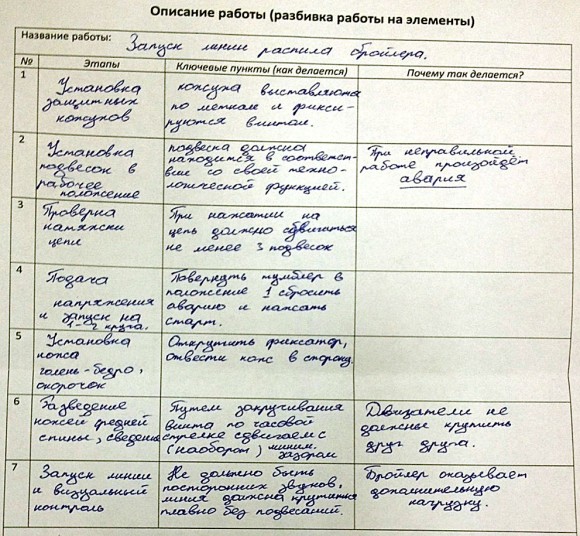 Описание работы (разбивка работы на элементы)
Название работы: Запуск линии распила бройлера.
№ Этапы Ключевые пункты (как делается) Почему так делается?
1
Установка
защитных
кожухов
кожуха выставляются
по меткам и фикси-
руются винтом.
2
Установка
подвесок в
рабочее
положение
подвеска должна
находится в соответст-
вие со своей техно-
логической функцией.
При неправильной
работе произойдёт
авария
3
Проверка
натяжки
цепи
При нажатии на
цепь должно сдвигаться
не менее 3 подвесок
4
Подача
напряжения
и запуск на
1-2 круга.
Повернуть тумблер в
положение 1 сбросить
аварию и нажать
старт.
5
Установка
ножа
голень-бедро,
окорочок
Открутить фиксатор,
отвести нож в сторону.
6
Разведение
ножей средней
спины, сведение
Путем закручивания
винта по часовой
стрелке сдвигаем с
(наоборот) миним.
зазором
Двигатели не
должны крутить
друг друга.
7
Запуск линии
и визуальный
контроль
Не должно быть
посторонних звуков,
линия должна крутится
плавно без подвесаний.
Бройлер оказывает
дополнительную
нагрузку.